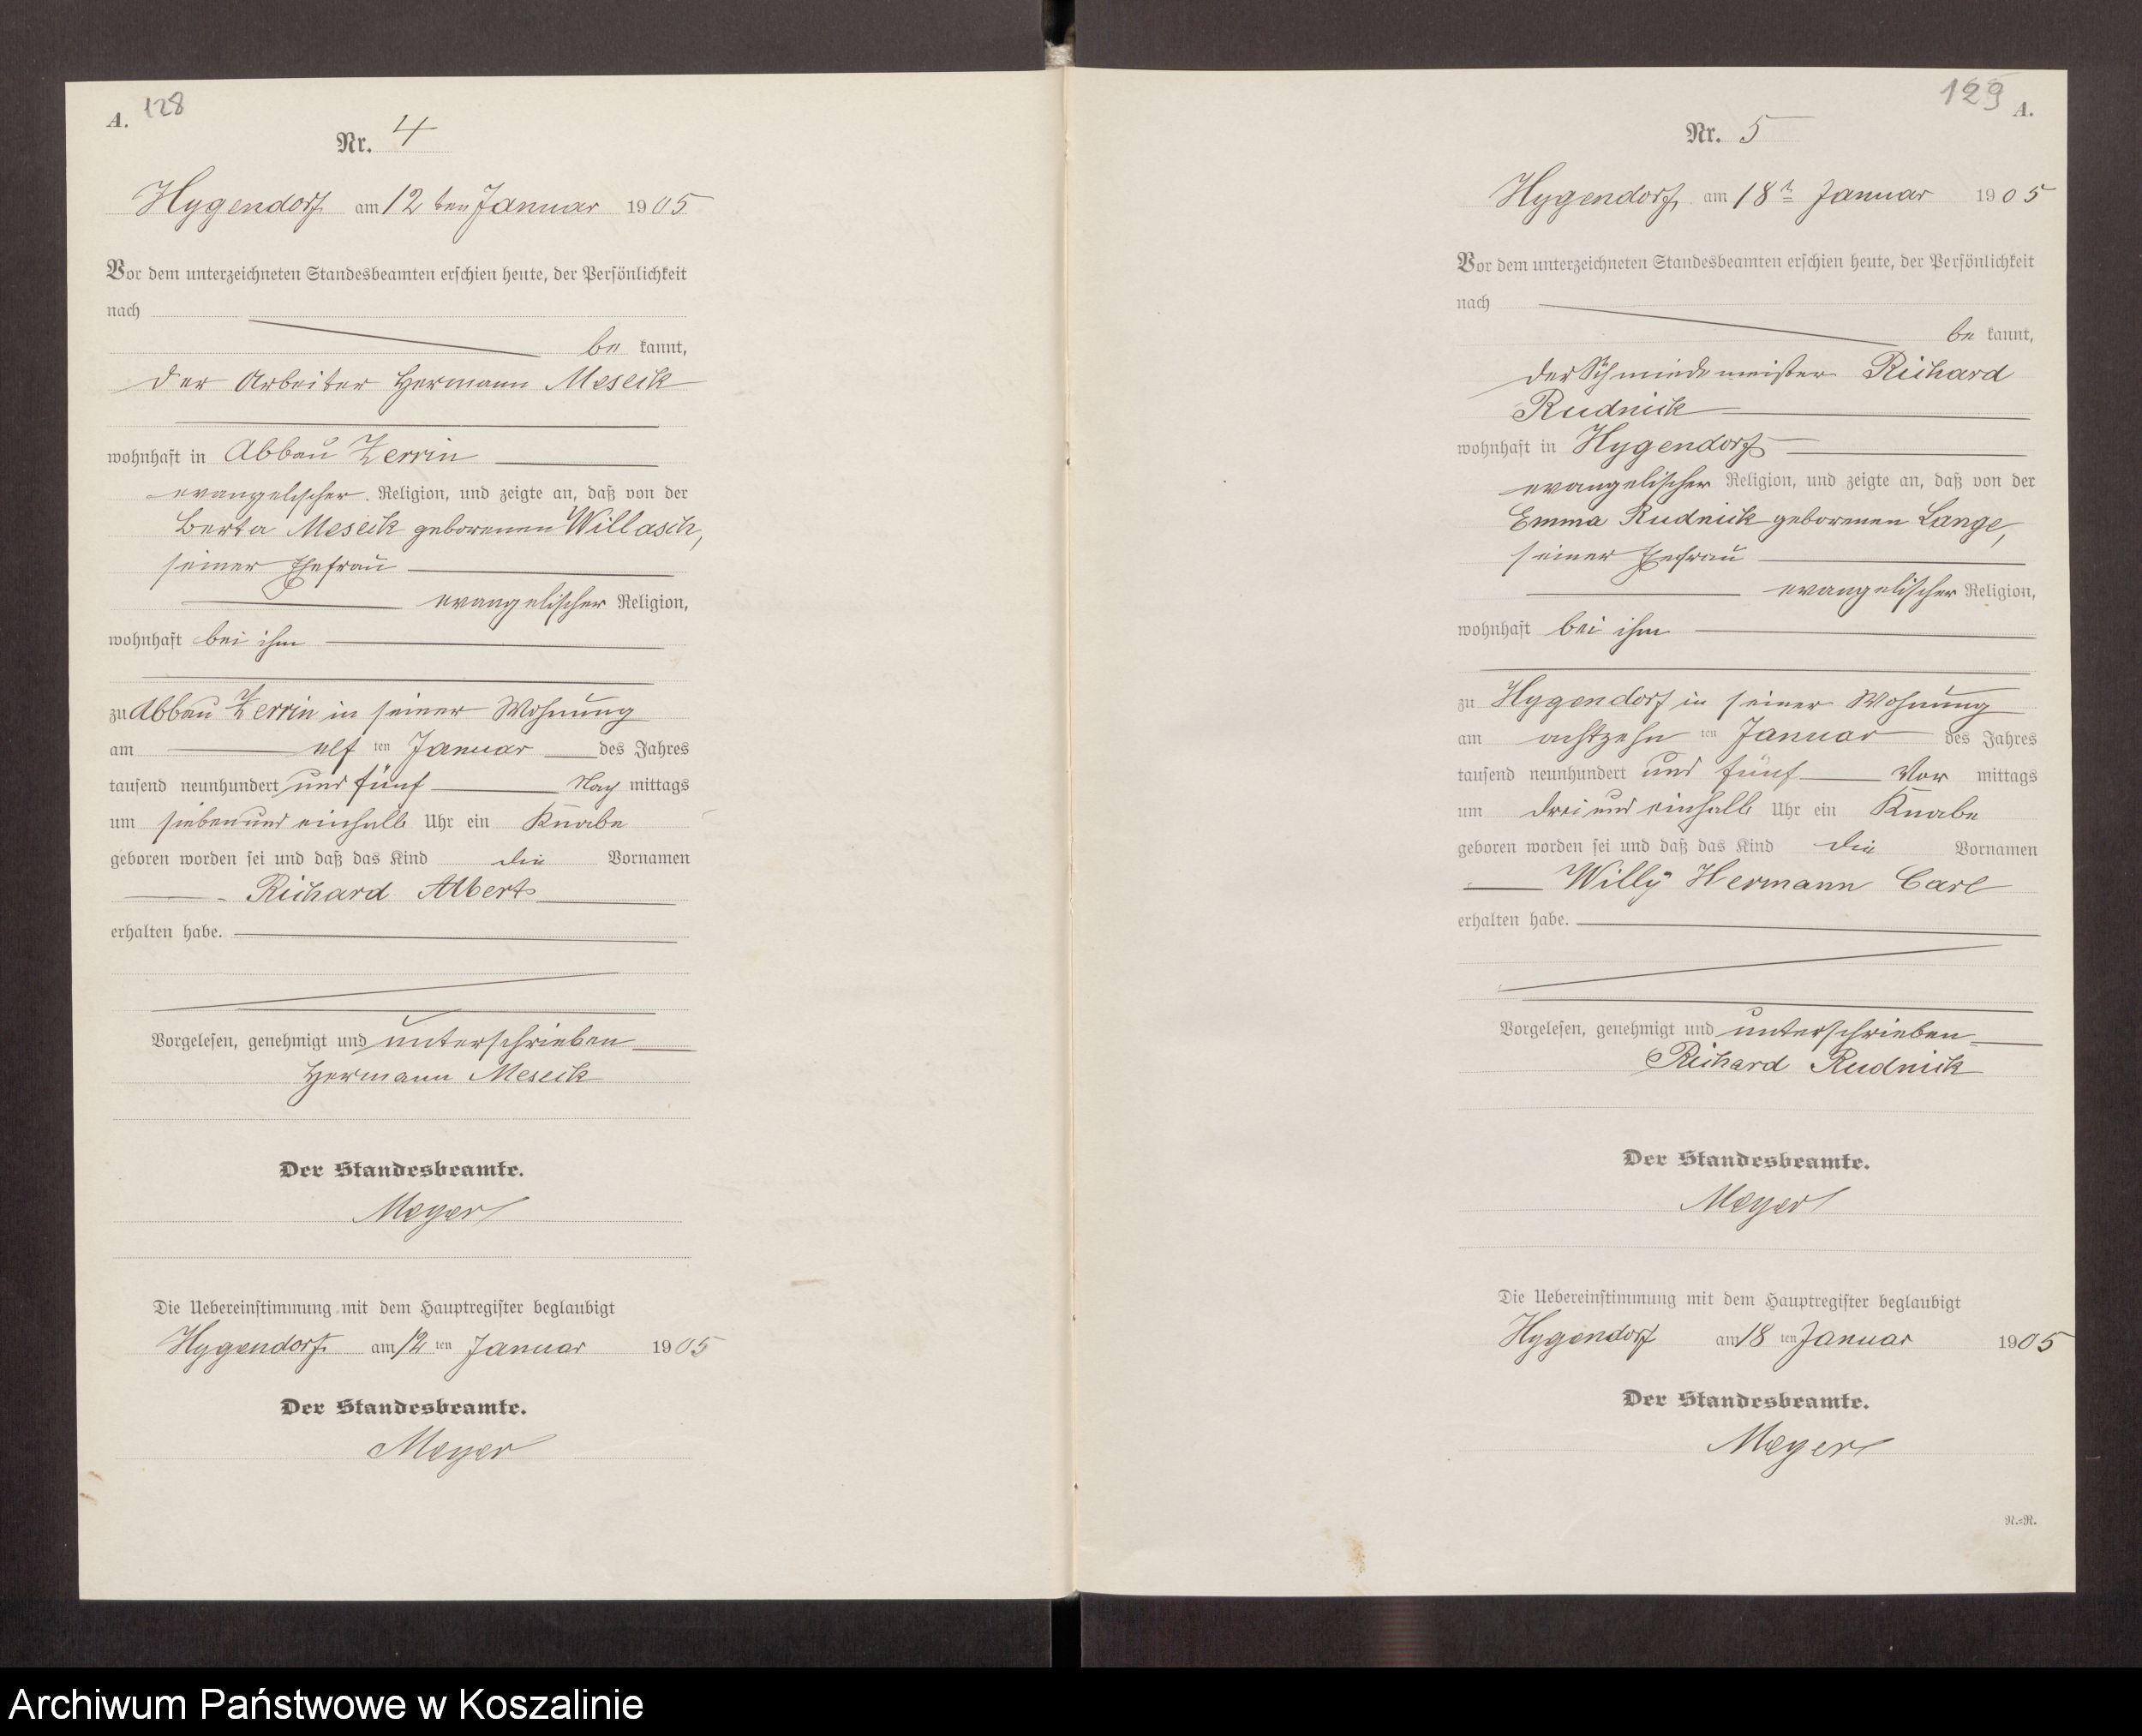 A. 128
Nr. 4
Hygendorf am 12ten Januar 1905
Vor dem unterzeichneten Standesbeamten erschien heute, der Persönlichkeit
nach
be kannt,
der Arbeiter Hermann Meseck
wohnhaft in Abbau Zerrin
evangelischer Religion, und zeigte an, daß von der
Berta Meseck geborenen Willasch,
seiner Ehefrau
evangelischer Religion,
wohnhaft bei ihm
zu Abbau Zerrin in seiner Wohnung
am elf ten Januar des Jahres
tausend neunhundert und fünf Nach mittags
um sieben und einhalb Uhr ein Knabe
geboren worden sei und daß das Kind die Vornamen
Richard Albert
erhalten habe.
Vorgelesen, genehmigt und unterschrieben
Hermann Meseck
Der Standesbeamte.
Meyer
Die Uebereinstimmung mit dem Hauptregister beglaubigt
Hygendorf am 12 ten Januar 1905
Der Standesbeamte.
Meyer
129 A.
Nr. 5
Hygendorf, am 18t Januar 1905
Vor dem unterzeichneten Standesbeamten erschien heute, der Persönlichkeit
nach
be kannt,
der Schmiedemeister Richard
Rudnick
wohnhaft in Hygendorf
evangelischer Religion, und zeigte an, daß von der
Emma Rudnick geborenen Lange,
seiner Ehefrau
evangelischer Religion,
wohnhaft bei ihm
zu Hygendorf in seiner Wohnung
am achtzehn ten Januar des Jahres
tausend neunhundert und fünf Vor mittags
um drei und einhalb Uhr ein Knabe
geboren worden sei und daß das Kind die Vornamen
Willÿ Hermann Carl
erhalten habe.
Vorgelesen, genehmigt und unterschrieben
Richard Rudnick
Der Standesbeamte.
Meyer
Die Uebereinstimmung mit dem Hauptregister beglaubigt
Hygendorf am 18 ten Januar 1905
Der Standesbeamte.
Meyer
R.-R.
Archiwum Państwowe w Koszalinie